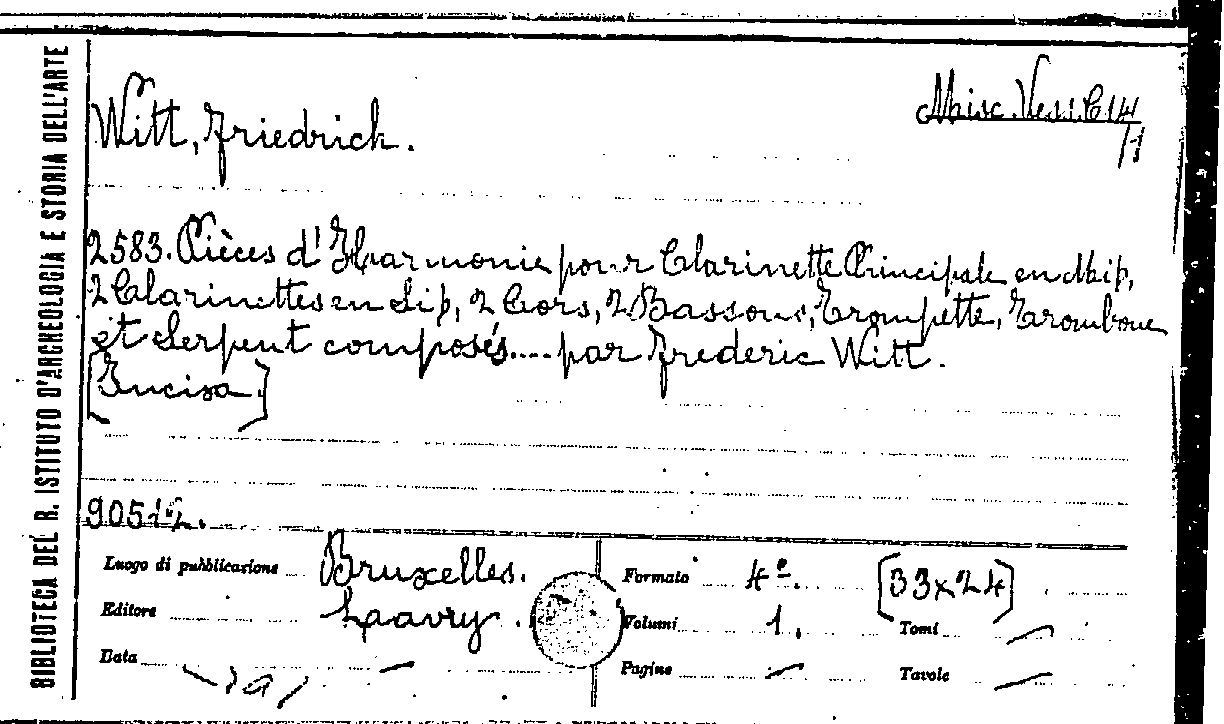 BIBLIOTECA DEL R. ISTITUTO D'ARCHEOLOGIA E STORIA DELL'ARTE
Witt, Friedrich.
Misc. Vess. C 14
/1
2583. Pièces d'Harmonie pour Clarinette Principale en Mi♭,
2 Clarinettes en Si♭, 2 Cors, 2 Bassons, Trompette, Trombone
et Serpent composés.... par Frederic Witt.
[Incisa.]
Luogo di pubblicazione Bruxelles.
Formato 4º. [33x24]
Editore
Volumi 1.
Tomi
Data
Pagine
Tavole